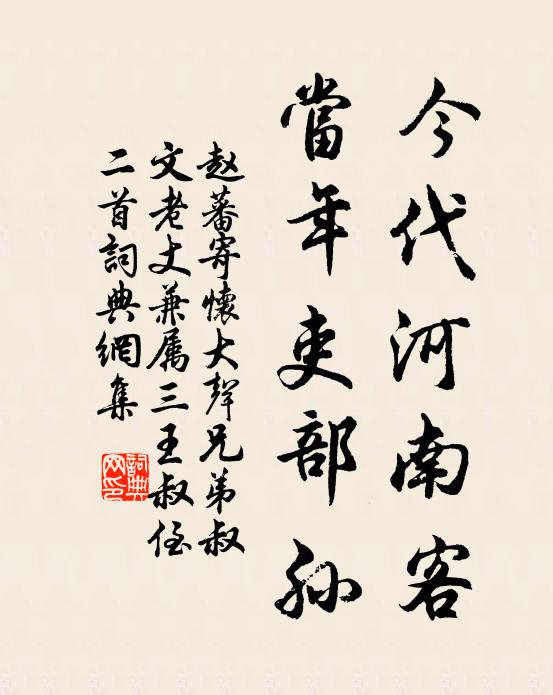 今代河南客
當年吏部孙
赵蕃寄懷大聲兄弟叔
文老丈兼属三王叔侄
二首詞典網集
詞典網印